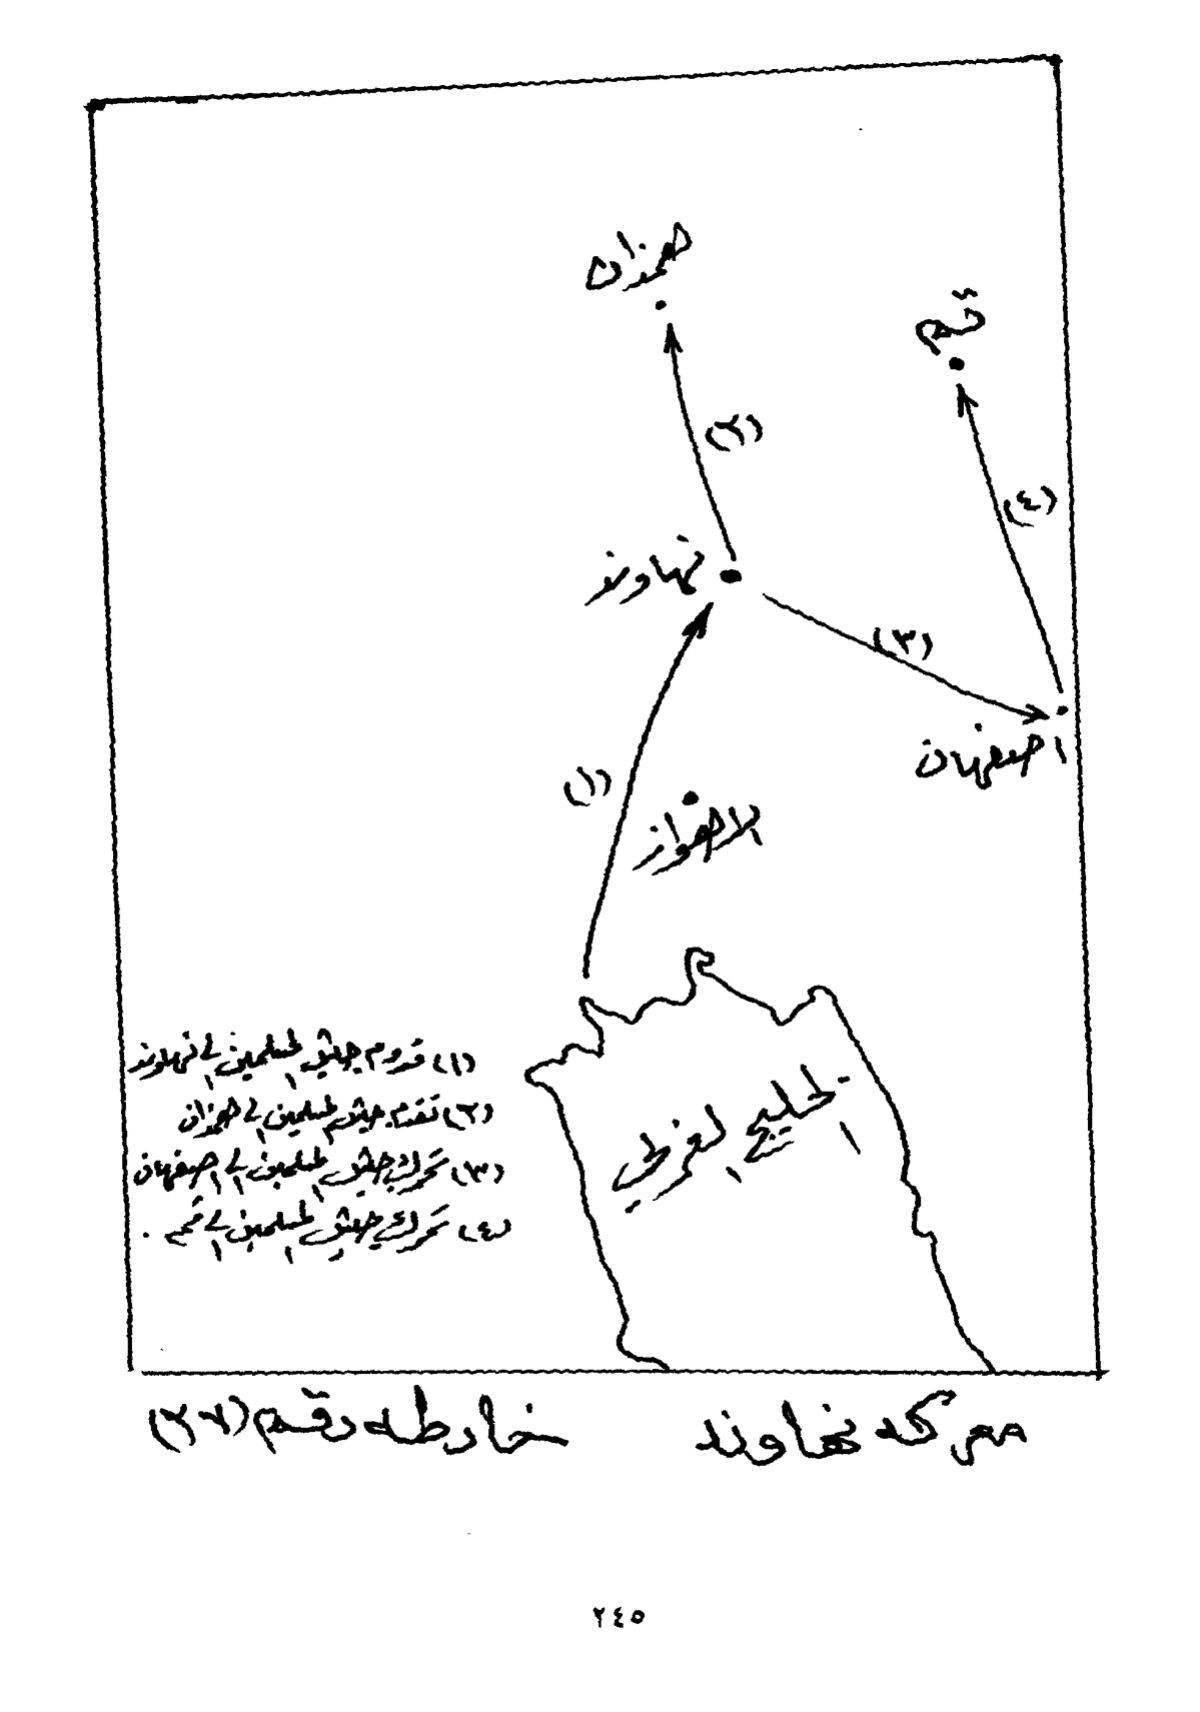 همذان
قم
(٢)
(٤)
نهاوند
(٣)
اصفهان
(١)
الاهواز
الخليج العربي
(١) قدوم جيش المسلمين الى نهاوند
(٢) تقدم جيش المسلمين الى همذان
(٣) تحرك جيش المسلمين الى اصفهان
(٤) تحرك جيش المسلمين الى قم .
معركة نهاوند خارطة رقم (٢٧)
٢٤٥